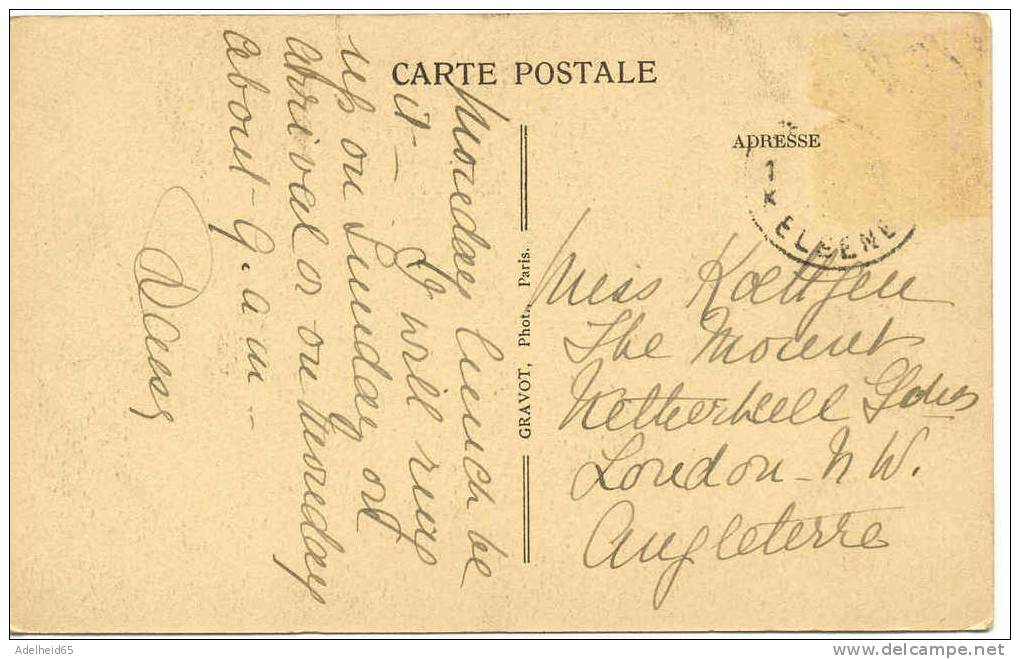 CARTE POSTALE
ADRESSE
GRAVOT, Phot., Paris.
Monday lunch be
it —
I will ring
up on Sunday on
arrival or on Monday
about 9. a m —
Miss Koettgen
The Mount
Netherhall Gdns
London - N W.
Angleterre
Adelheid65
delcampe.net